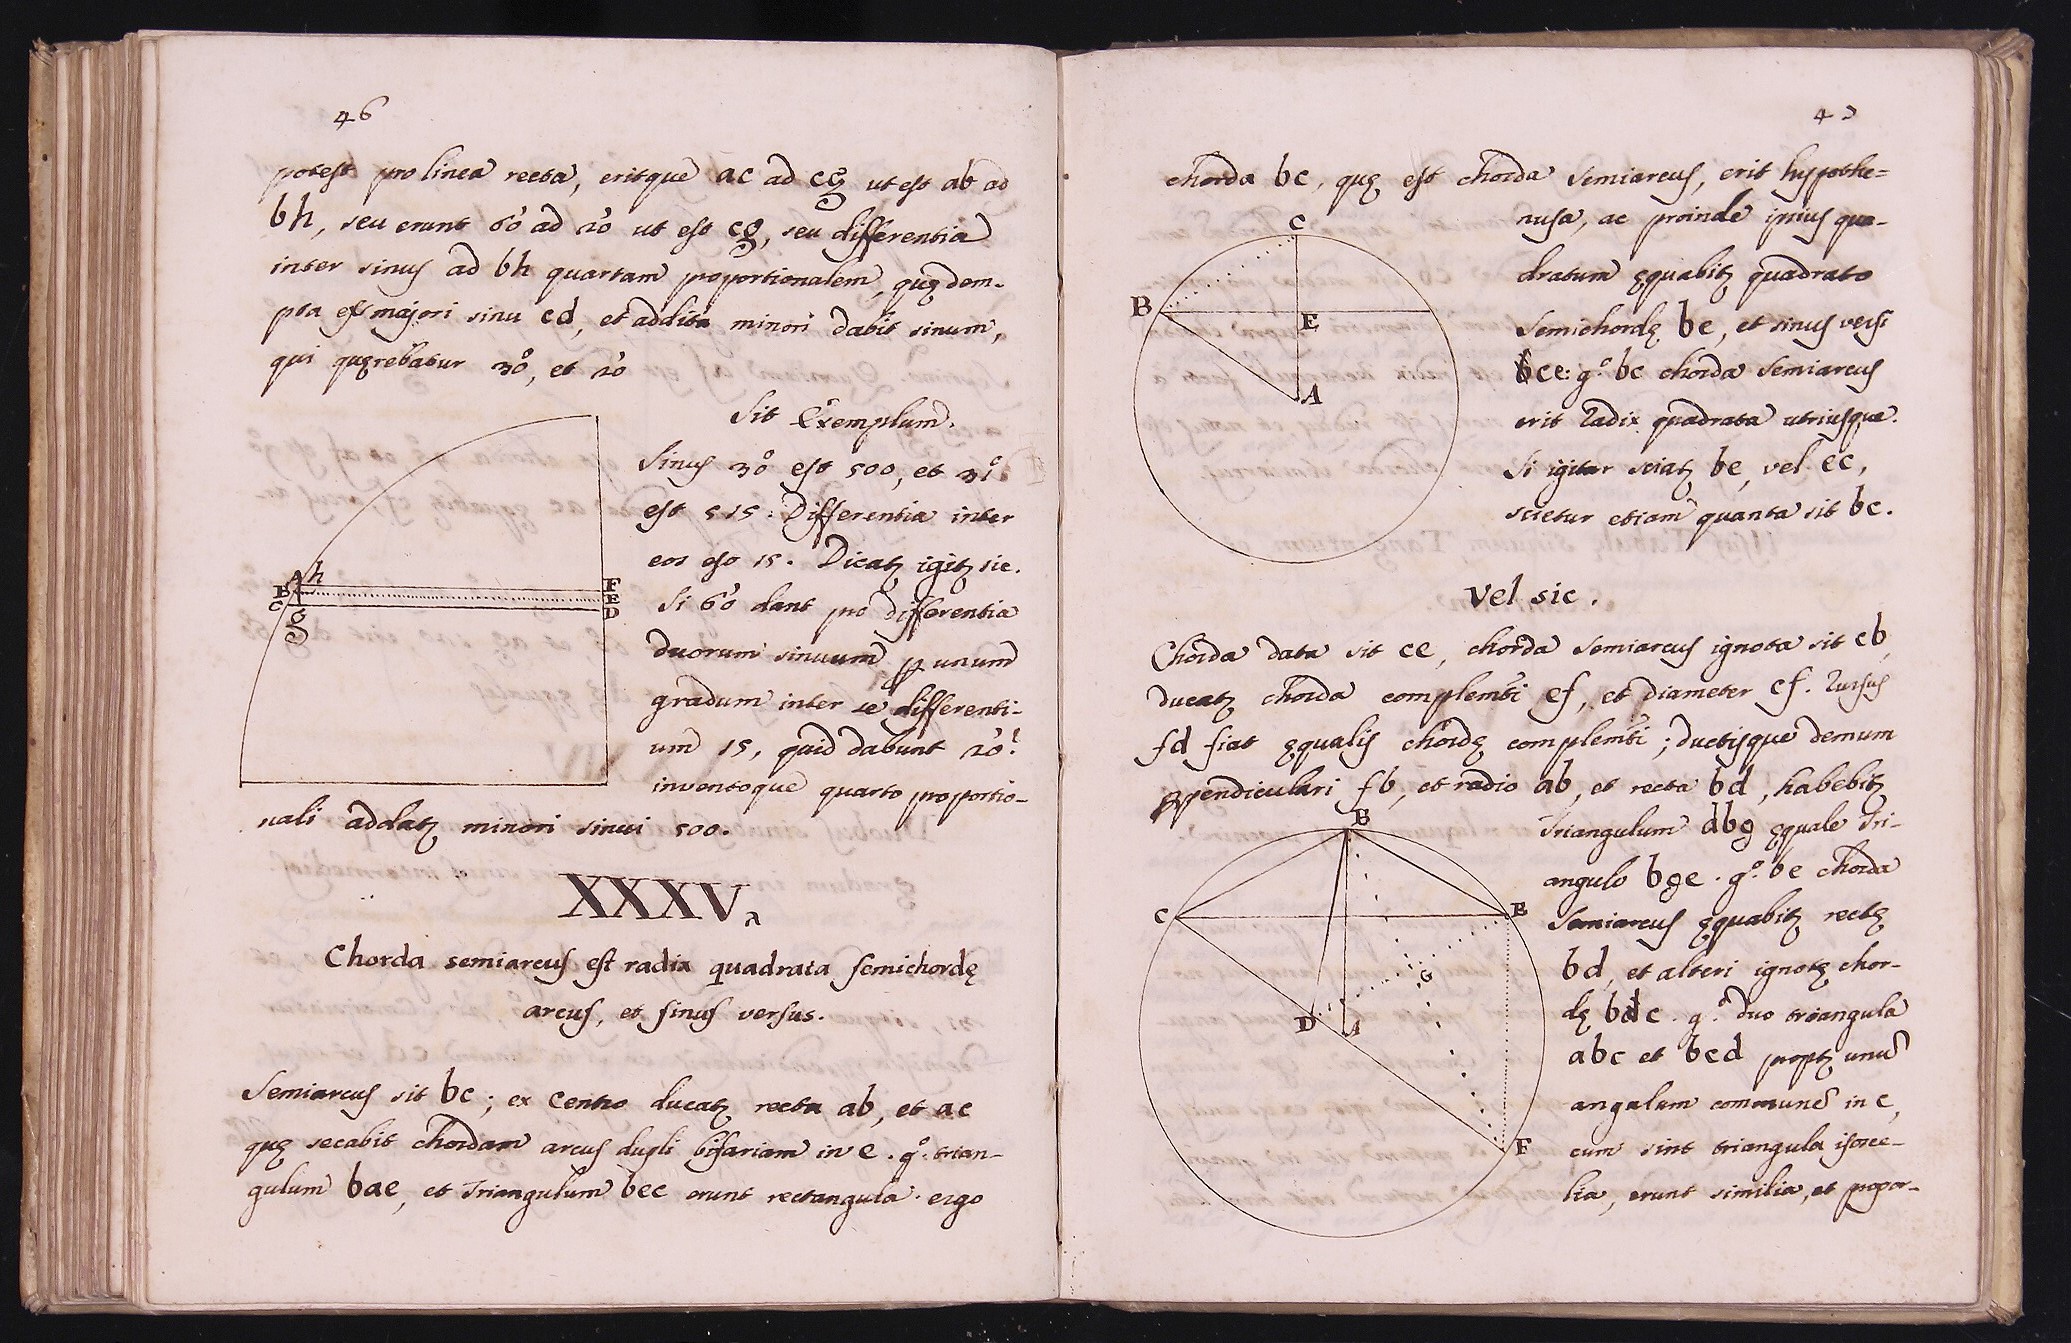 46
potest pro linea recta, eritque ac ad cg ut est ab ad
bh, seu erunt 60' ad 20' ut est cg, seu differentia
inter sinus ad bh quartam proportionalem, quę dem-
pta ex majori sinu cd, et addita minori dabit sinum,
qui quęrebatur 30°, et 20'
Sit Exemplum.
Sinus 30° est 500, et 31°
est 515: Differentia inter
eos est 15. Dicatʒ igitʒ sic.
Si 60' dant pro differentia
duorum sinuum ꝑ unum
gradum inter se differenti-
um 15, quid dabunt 20'?
inventoque quarto proportio-
nali addatʒ minori sinui 500.
A h
B
C
g
F
E
D
XXXV.a
Chorda semiarcus est radix quadrata semichordę
arcus, et sinus versus.
Semiarcus sit bc; ex centro ducatʒ recta ab, et ac
quę secabit chordam arcus dupli bifariam in e. g°. trian-
gulum bae, et Triangulum bec erunt rectangula. ergo
47
chorda bc, quę est chorda semiarcus, erit hypothe=
nusa, ac proinde ipsius qua-
dratum ęquabitʒ quadrato
semichordę be, et sinus versi
ce: g°. bc chorda semiarcus
erit Radix quadrata utriusque.
Si igitur sciatʒ be, vel ec,
scietur etiam quanta sit bc.
C
B
E
A
Vel sic.
Chorda data sit ce, chorda semiarcus ignota sit cb,
ducatʒ chorda complemti ef, et diameter cf. Rursus
fd fiat ęqualis chordę complemti; ductisque demum
ꝑpendiculari fb, et radio ab, et recta bd, habebitʒ
Triangulum dbg ęquale Tri-
angulo bge. g°. be chorda
Semiarcus ęquabitʒ rectę
bd, et alteri ignotę chor-
dę bc. g°. duo triangula
abc et bcd proptʒ unū
angulum communē in c,
cum sint triangula isosce-
lia, erunt similia, et propor-
B
C
E
G
D
A
F